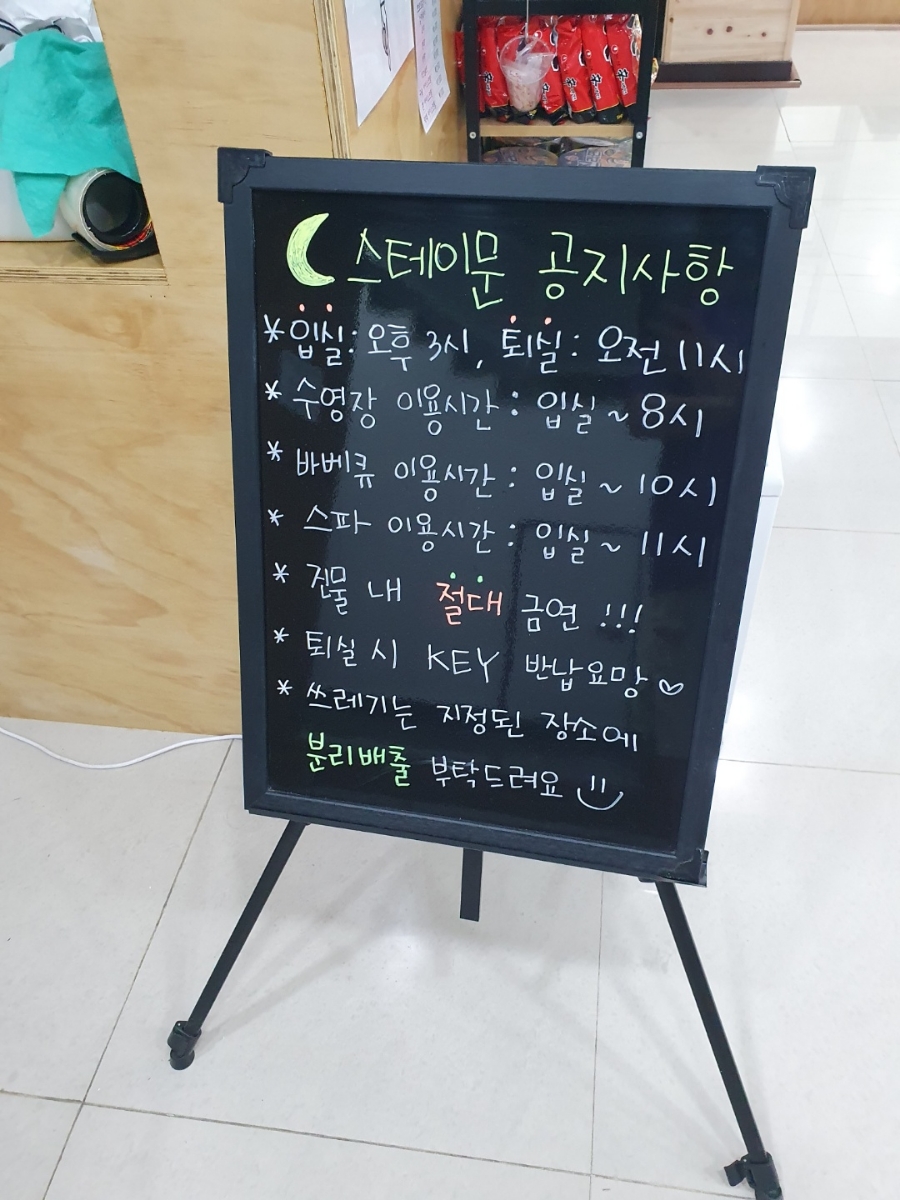 스테이문 공지사항
* 입실: 오후 3시, 퇴실: 오전 11시
* 수영장 이용시간 : 입실 ~ 8시
* 바베큐 이용시간 : 입실 ~ 10시
* 스파 이용시간 : 입실 ~ 11시
* 건물 내 절대 금연 !!!
* 퇴실 시 KEY 반납요망♡
* 쓰레기는 지정된 장소에
분리배출 부탁드려요